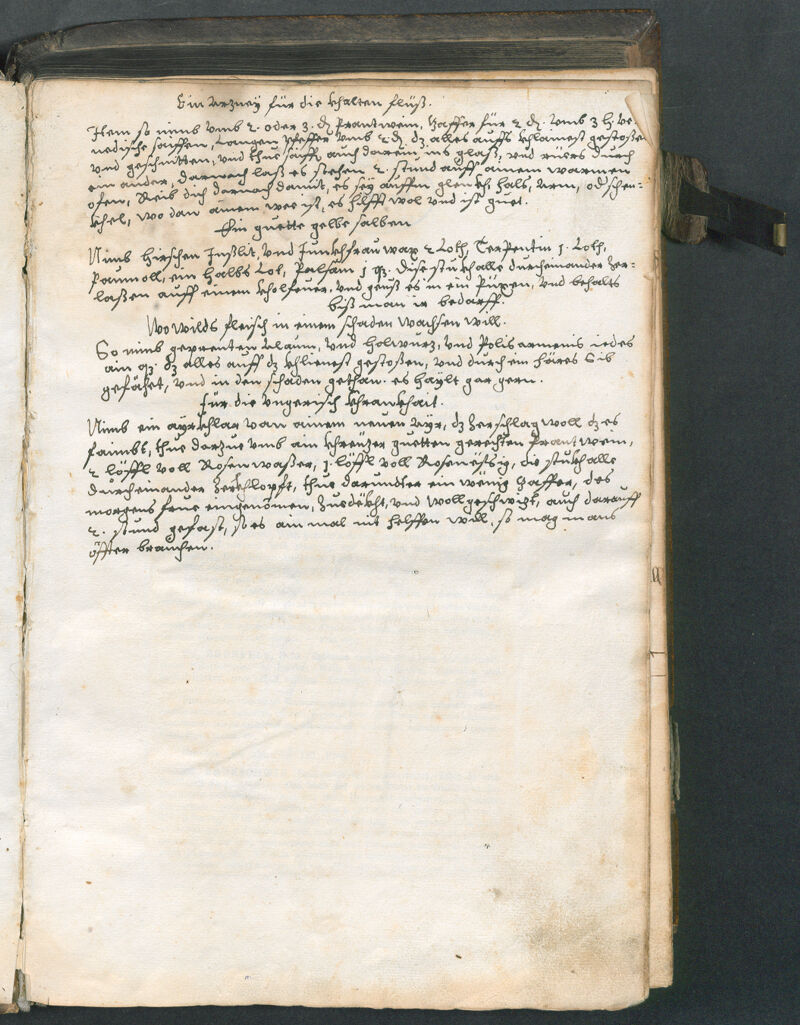 Ein Arzney für die khalten flüß.
Item so nimb vmb 2. oder 3. ₰ Prantwein, Saffer für 2 ₰. vmb 3 h ve-
nedische saiffen, Langen Pfeffer vmb 2 ₰ dz alles auffs khlainest gestoßen
vnd geschnitten, vnd thue saiff auch darein ins glaß, vnd rüers durch
ein ander, darnach laß es stehen 2. stund auff ainem warmen
ofen, Reib dich darnach damit, es sey auffm glenkh, hals, Arm, od schen-
khel, wo dan ainem wee ist, es hilfft wol vnd ist guet.
Ein guette gelbe salben
Nimb Hirschen Inßlit, vnd Junkhfrau wax 2 Loth, Terpentin 1. Loth,
Paumöll, ein halbs Lot, Palsam 1 q. Dise stukh alle durcheinander zer-
laßen auff einem kholfeuer, vnd geuß es in ein Püxen, vnd behalts
biß man ir bedarff.
Wo wilds fleisch in einem schaden wachsen will.
So nimb geprenten Alaun, vnd holwurz, vnd Polis armenis iedes
ain q. dz alles auff dz khlienest gestoßen, vnd durch ein häres Sib
gefähet, vnd in den schaden gethan. es haylt gar gern.
für die vngerisch khrankhait.
Nimb ein ayrkhlar von ainem neuen Ayr, dz zerschlag woll dz es
faimbt, thue darzue vmb ain khreuzer guetten gerechten Prantwein,
2 löffl voll Rosenwaßer, 1. löffl voll Rosenessig, die stukh alle
durcheinander zerkhlopft, thue darundter ein wenig Saffer, des
morgens frue eingenomen, zuedekht, vnd woll geschwizt, auch darauff
2. stund gefast, so es ain mal nit helffen will, so mag mans
öffter brauchen.